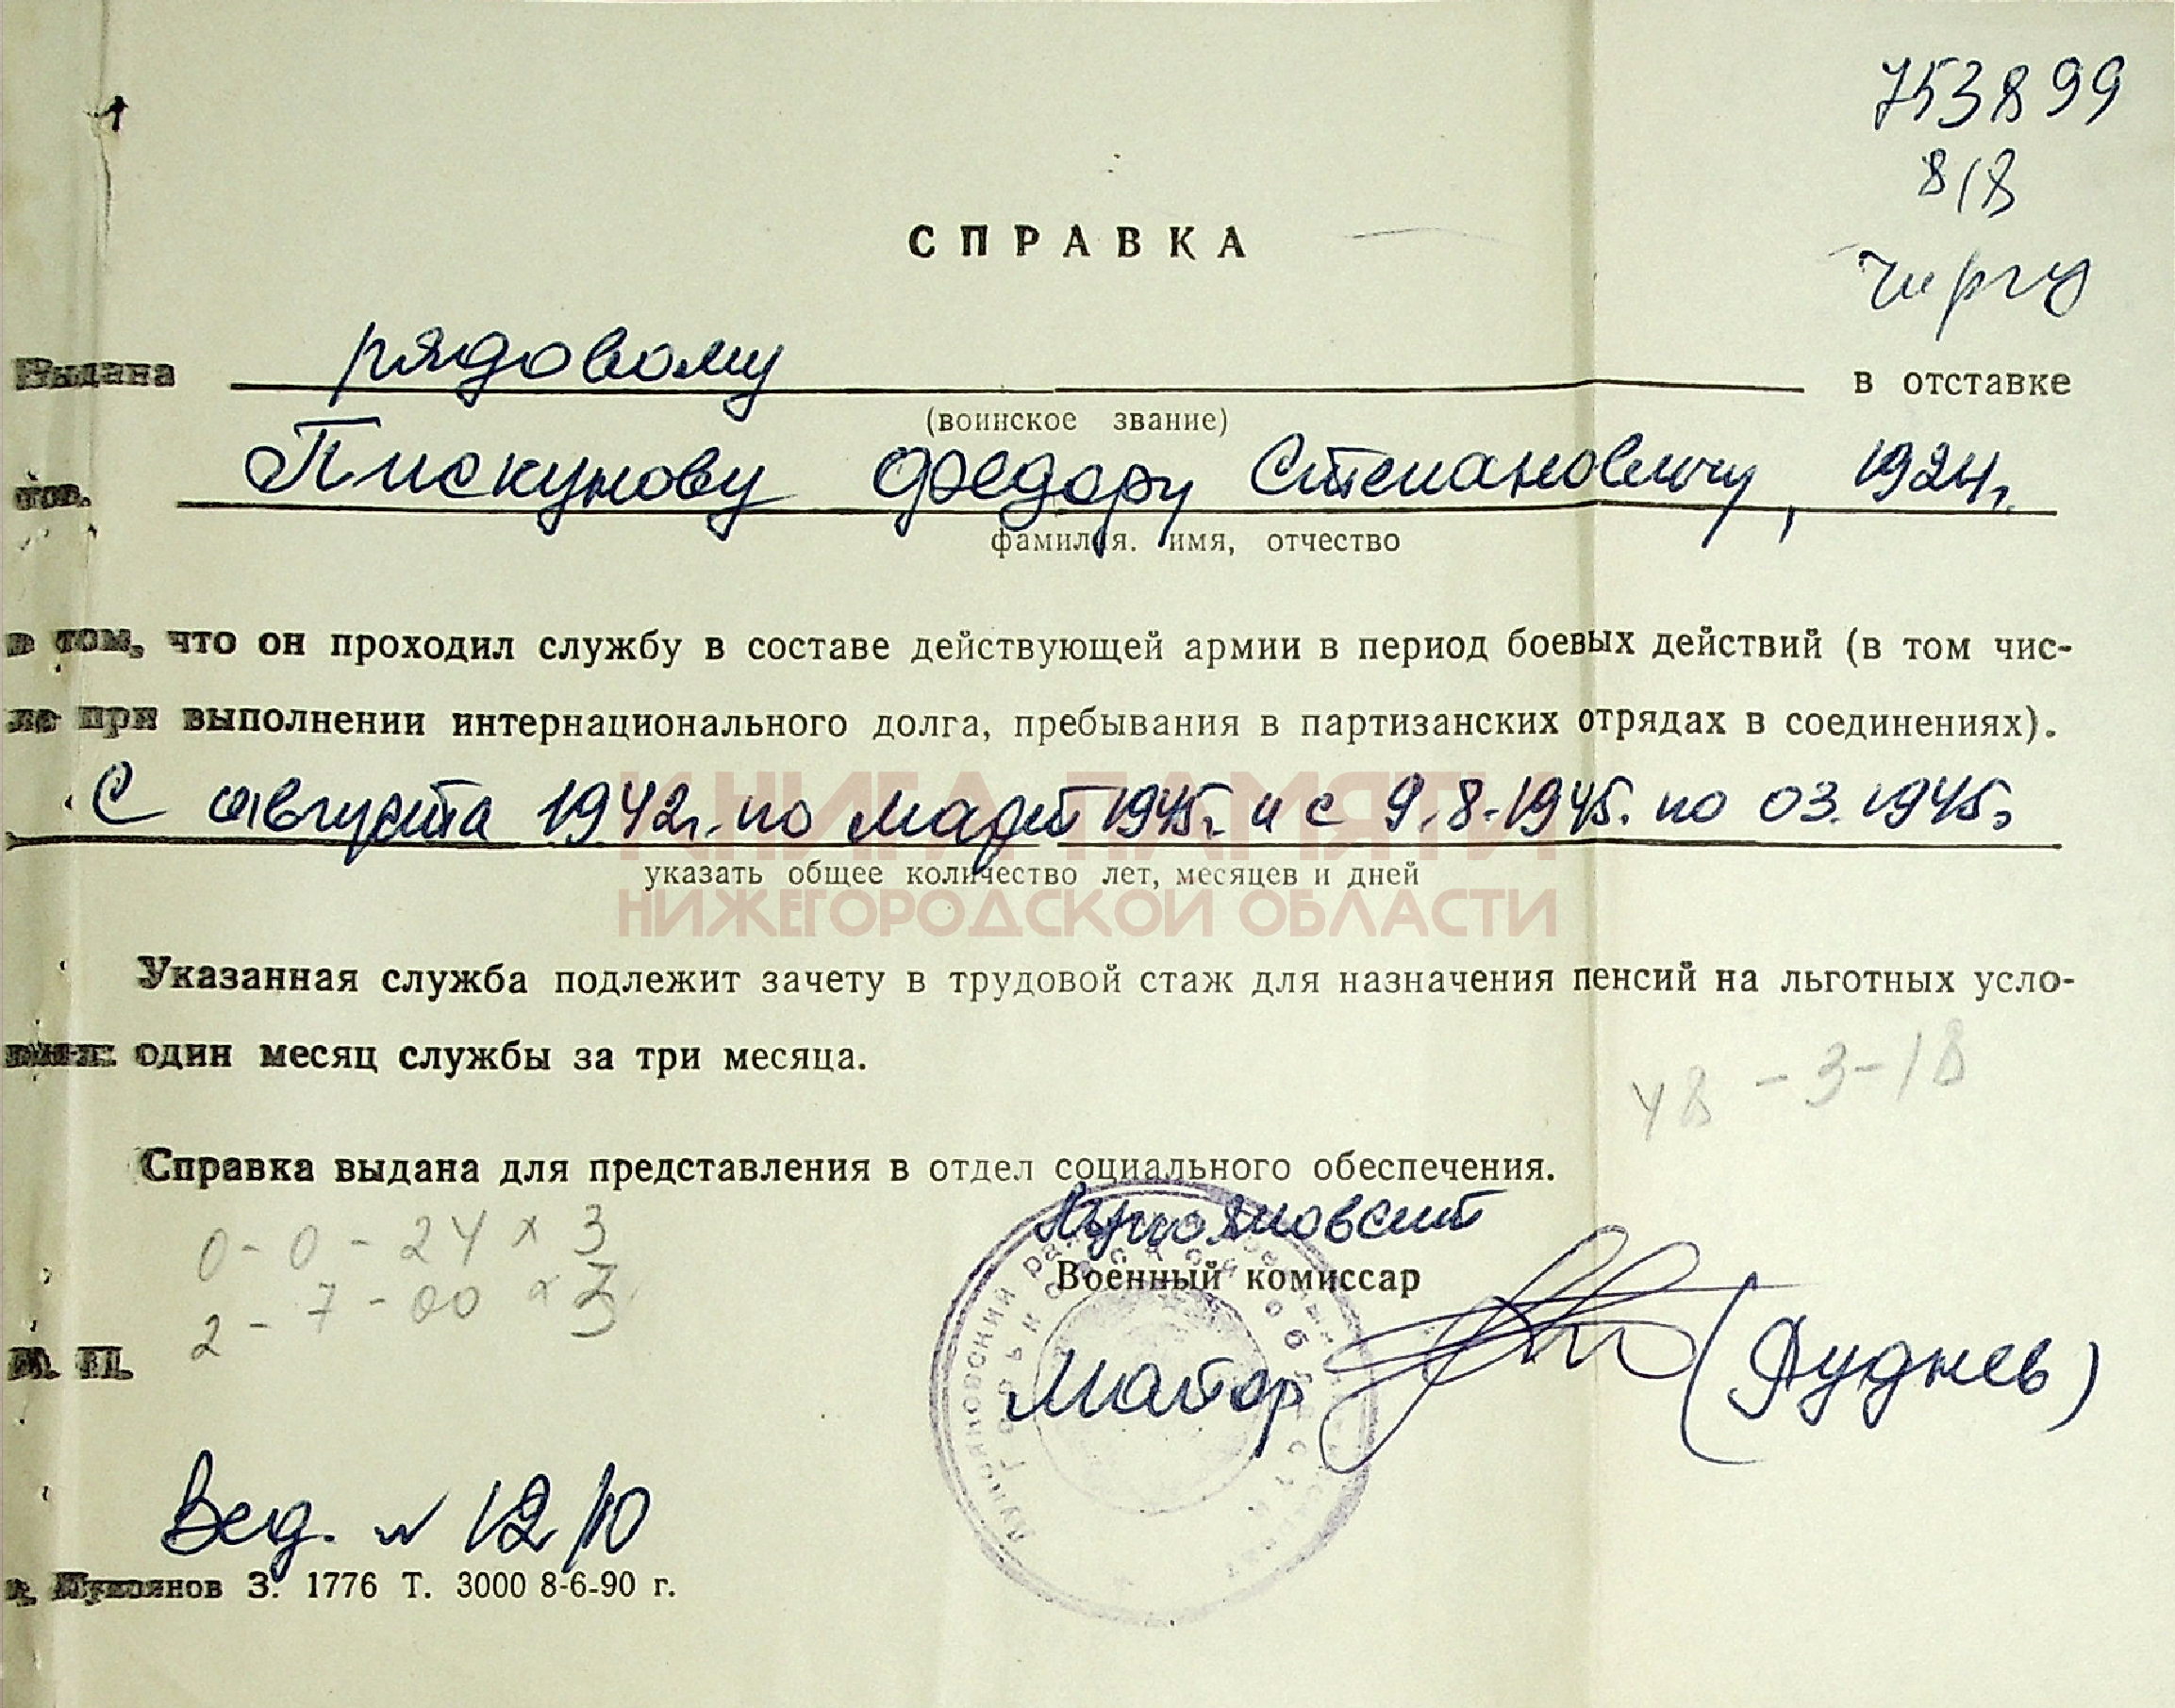 753899
8/8
СПРАВКА
Выдана рядовому в отставке
(воинское звание)
тов. Пискунову Федору Степановичу, 1924г.
фамилия. имя, отчество
в том, что он проходил службу в составе действующей армии в период боевых действий (в том чис-
ле при выполнении интернационального долга, пребывания в партизанских отрядах в соединениях).
С августа 1942г. по март 1945г. и с 9.8.1945г. по 03.1945г
КНИГА ПАМЯТИ
указать общее количество лет, месяцев и дней
НИЖЕГОРОДСКОЙ ОБЛАСТИ
Указанная служба подлежит зачету в трудовой стаж для назначения пенсий на льготных усло-
виях: один месяц службы за три месяца.
48-3-18
Справка выдана для представления в отдел социального обеспечения.
0-0-24 x 3
2-7-00 x 3
Лукояновский
Военный комиссар
М. П.
Майор (Дуднев)
Вед. № 12/10
г. Лукоянов З. 1776 Т. 3000 8-6-90 г.